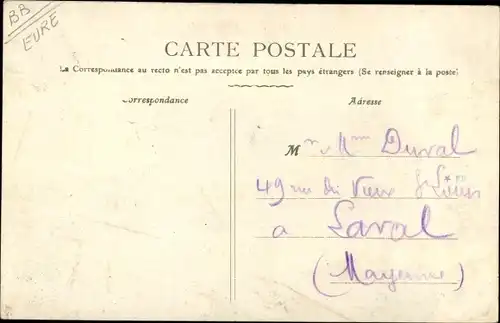 BB
EURE
CARTE POSTALE
La Correspondance au recto n'est pas acceptée par tous les pays étrangers (Se renseigner à la poste)
Correspondance
Adresse
M r & Mme Duval
49 rue du Vieux St Louis
a Laval
(Mayenne)